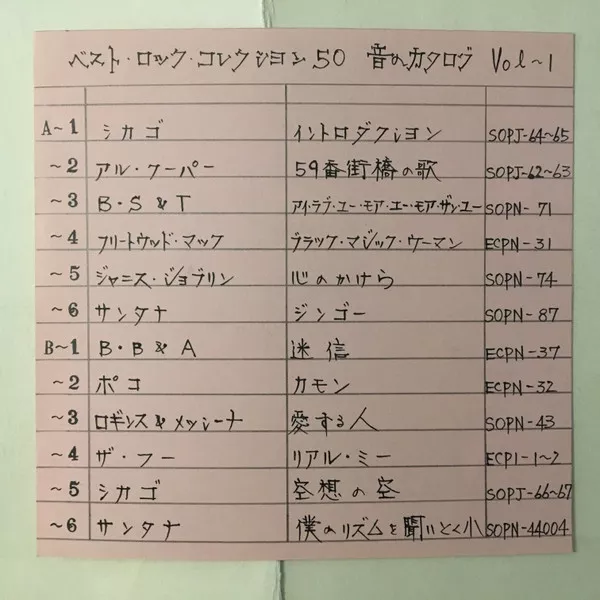 ベスト・ロック・コレクション50 音のカタログ Vol~1
A~1 シカゴ イントロダクション SOPJ-64~65
~2 アル・クーパー 59番街橋の歌 SOPJ-62~63
~3 B・S&T アイ・ラブ・ユー・モア・ユー・モア・ザン・ユー SOPN-71
~4 フリートウッド・マック ブラック・マジック・ウーマン ECPN-31
~5 ジャニス・ジョプリン 心のかけら SOPN-74
~6 サンタナ ジンゴー SOPN-87
B~1 B・B&A 迷信 ECPN-37
~2 ポコ カモン ECPN-32
~3 ロギンス&メッシーナ 愛する人 SOPN-43
~4 ザ・フー リアル・ミー ECPI-1~2
~5 シカゴ 空想の空 SOPJ-66~67
~6 サンタナ 僕のリズムを聞いとくれ SOPN-44004